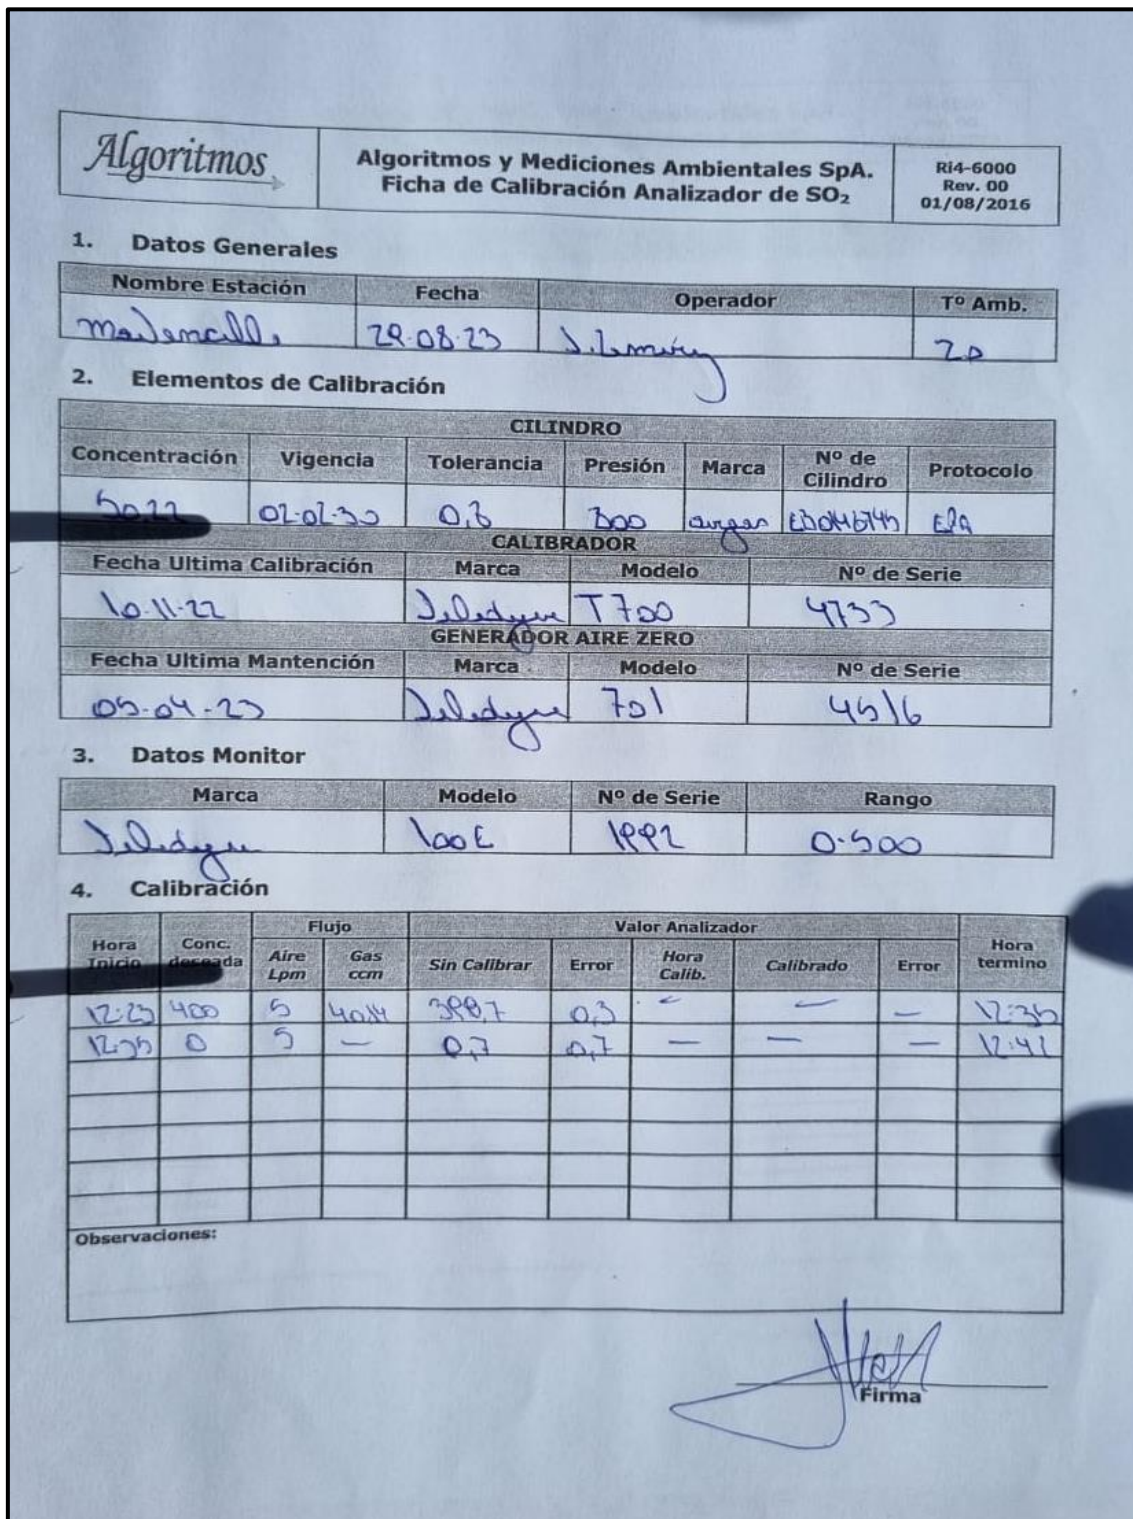 Algoritmos
Algoritmos y Mediciones Ambientales SpA.
Ficha de Calibración Analizador de SO₂
Ri4-6000
Rev. 00
01/08/2016
1. Datos Generales
Nombre Estación Fecha Operador Tº Amb.
08-23 20
2. Elementos de Calibración
CILINDRO
Concentración Vigencia Tolerancia Presión Marca Nº de Cilindro Protocolo
50,22 02-02-30 EPA
CALIBRADOR
Fecha Ultima Calibración Marca Modelo Nº de Serie
10-11-22 Teledyne T700 4733
GENERADOR AIRE ZERO
Fecha Ultima Mantención Marca Modelo Nº de Serie
05-04-23 Teledyne 701 4516
3. Datos Monitor
Marca Modelo Nº de Serie Rango
Teledyne 100E 1992 0-500
4. Calibración
Flujo Valor Analizador
Hora Inicio Conc. deseada Aire Lpm Gas ccm Sin Calibrar Error Hora Calib. Calibrado Error Hora termino
12:23 400 5 40,14 399,7 0,3 – – – 12:35
12:35 0 5 – 0,7 0,7 – – – 12:42
Observaciones:
Firma